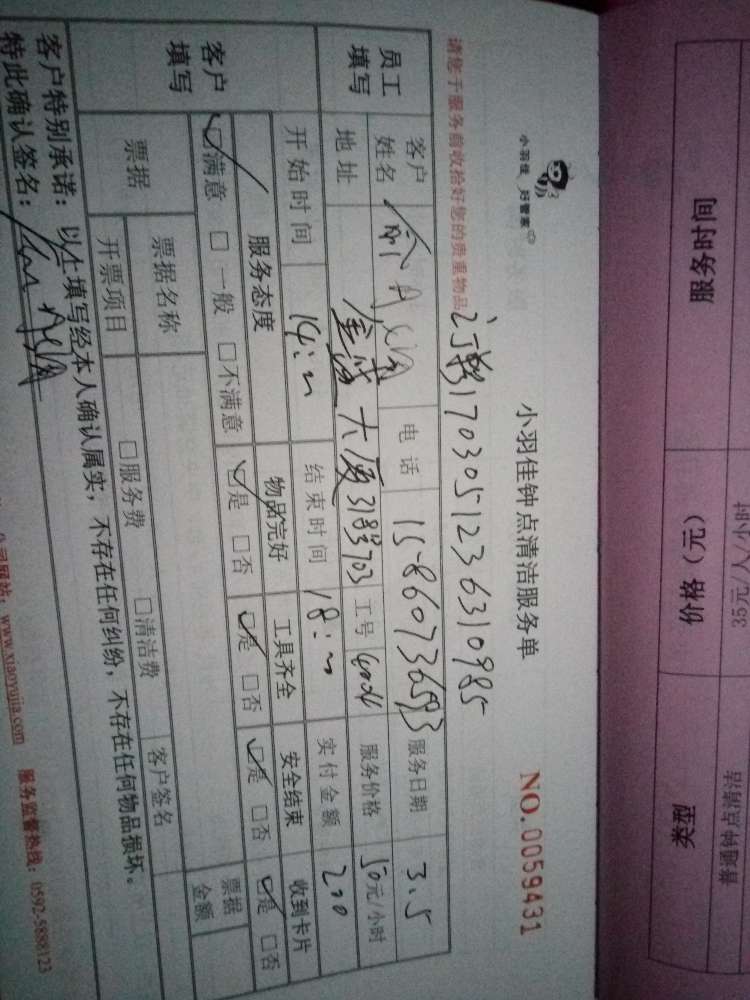 小羽佳 好管家
小羽佳钟点清洁服务单
NO.0059431
请您于服务前收拾好您的贵重物品
1703051236310985
员工填写
客户姓名 电话 15860736593 服务日期 3.5
地址 大厦 703 工号 服务价格 50元/小时
开始时间 14: 结束时间 18: 实付金额 200
客户填写
服务态度 物品完好 工具齐全 安全结束 收到卡片
☑满意 □一般 □不满意 ☑是 □否 ☑是 □否 ☑是 □否 ☑是 □否
票据 票据名称 客户签名 票据金额
开票项目 □服务费 □清洁费
客户特别承诺:以上填写经本人确认属实,不存在任何纠纷,不存在任何物品损坏。
特此确认签名:
公司网站:www.xiaoyujia.com 服务监督热线:0592-5888123
类型 价格(元) 服务时间
普通钟点清洁 35元/人/小时